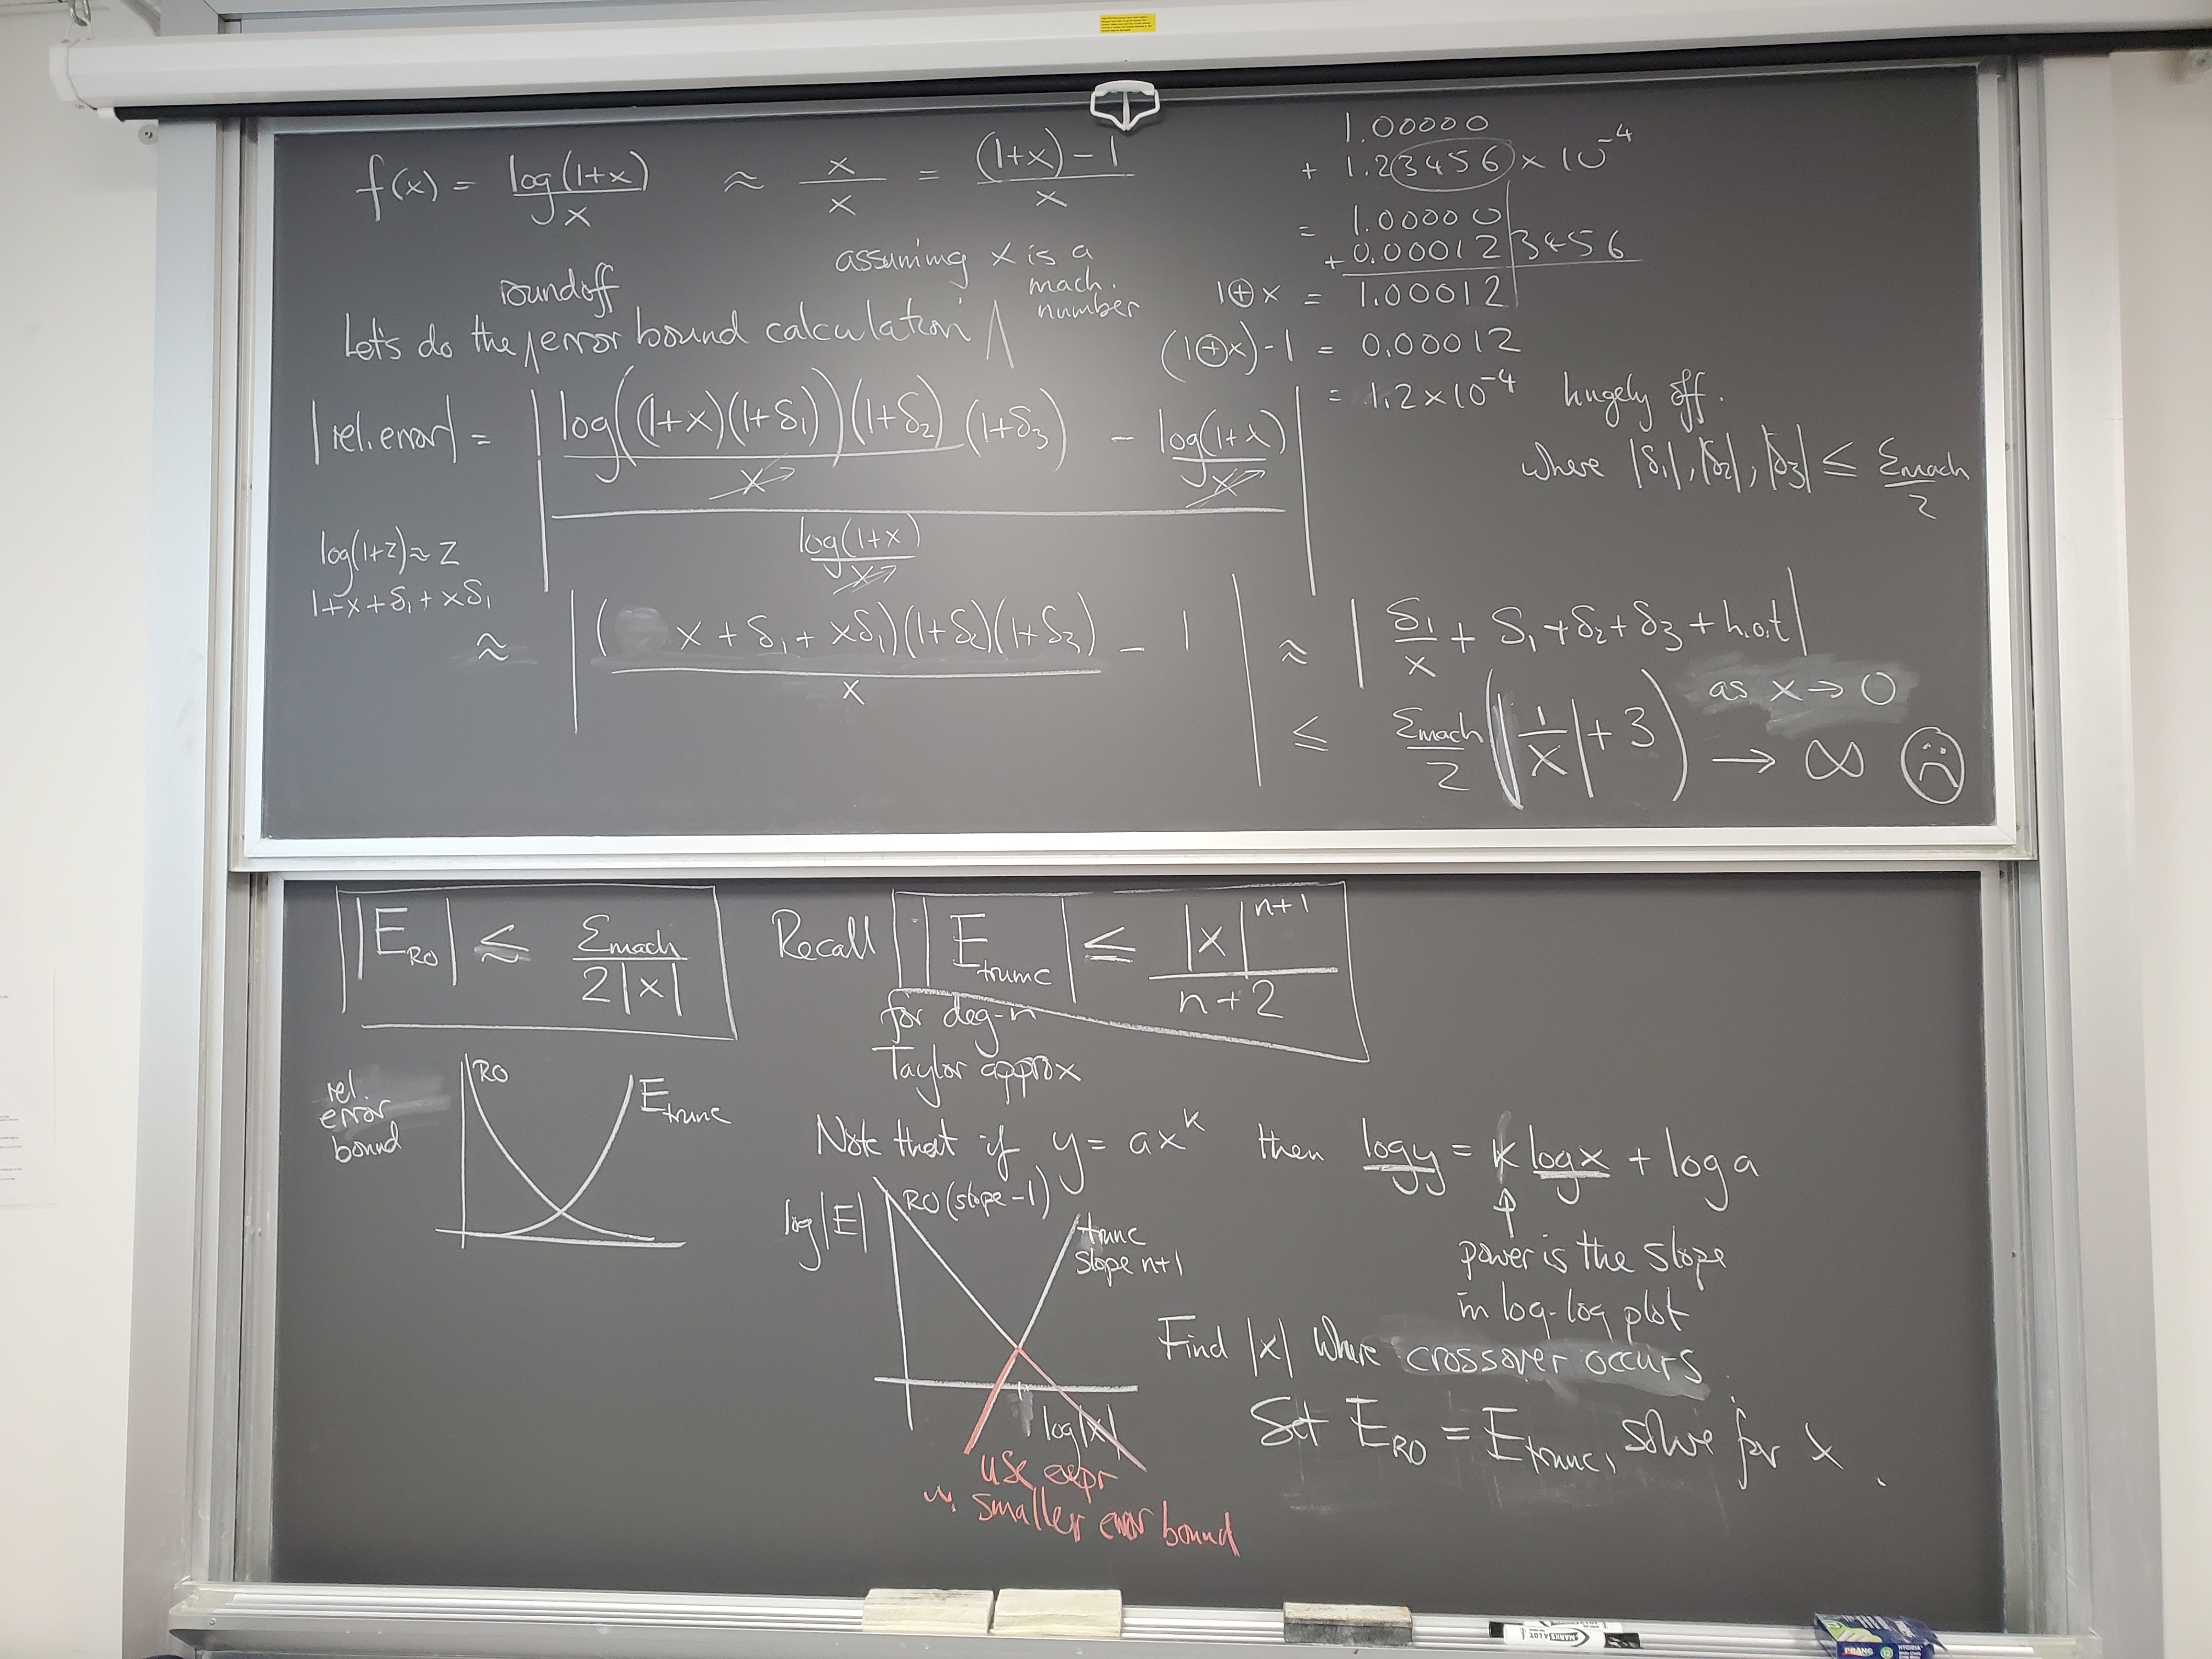 f(x) = log(1+x)/x ≈ x/x = ((1+x)-1)/x
1.00000
+ 1.23456 × 10^-4
= 1.00000
+ 0.00012|3456
1⊕x = 1.00012
(1⊕x)-1 = 0.00012
= 1.2×10^-4 hugely off.
assuming x is a
mach.
number
roundoff
Let's do the ∧ error bound calculation ∧
|rel.error| = | (log((1+x)(1+δ₁))(1+δ₂)/x (1+δ₃) - log(1+x)/x) / (log(1+x)/x) |
where |δ₁|, |δ₂|, |δ₃| ≤ εmach/2
log(1+z)≈z
1+x+δ₁+xδ₁
≈ | (x+δ₁+xδ₁)(1+δ₂)(1+δ₃)/x - 1 | ≈ | δ₁/x + δ₁+δ₂+δ₃+h.o.t |
as x→0
≤ εmach/2 (|1/x|+3) → ∞ ☹
|E_RO| ≲ εmach/(2|x|)
Recall |E_trunc| ≤ |x|^(n+1)/(n+2)
for deg-n
Taylor approx
rel.
error
bound
RO
E_trunc
Note that if y = ax^k then log y = k log x + log a
↑
power is the slope
in log-log plot
log|E|
RO (slope -1)
trunc
slope n+1
log|x|
use expr
w. smaller error bound
Find |x| where crossover occurs.
Set E_RO = E_trunc, solve for x.
MARKS A LOT
PRANG
12